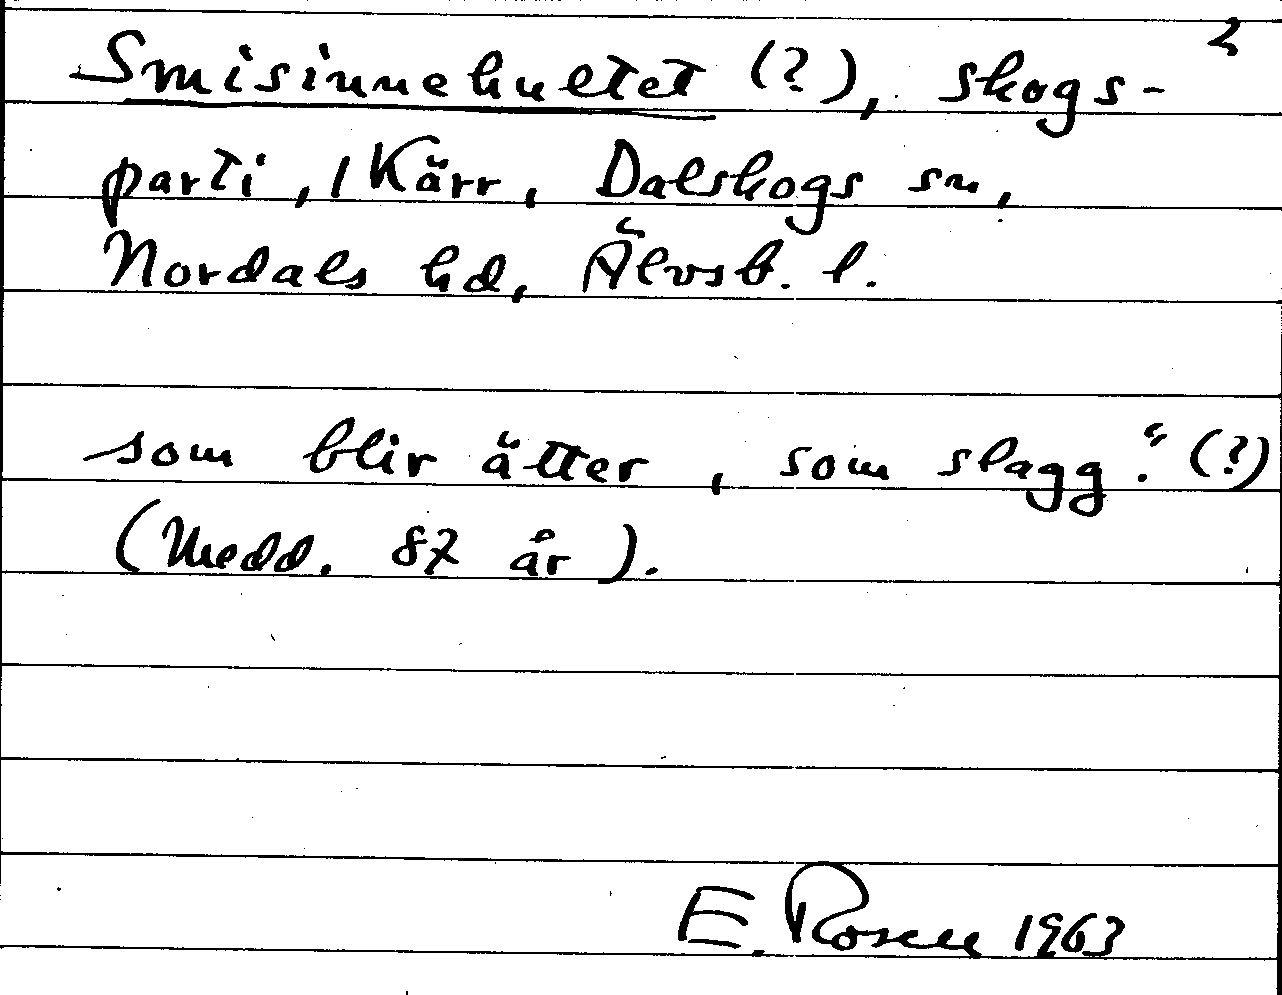 2
Smisinnehultet (?), skogs-
parti, 1 Kärr, Dalskogs sn,
Nordals hd, Älvsb. l.
som blir ätter, som slagg." (?)
(Medd. 87 år).
E. Rosell 1963